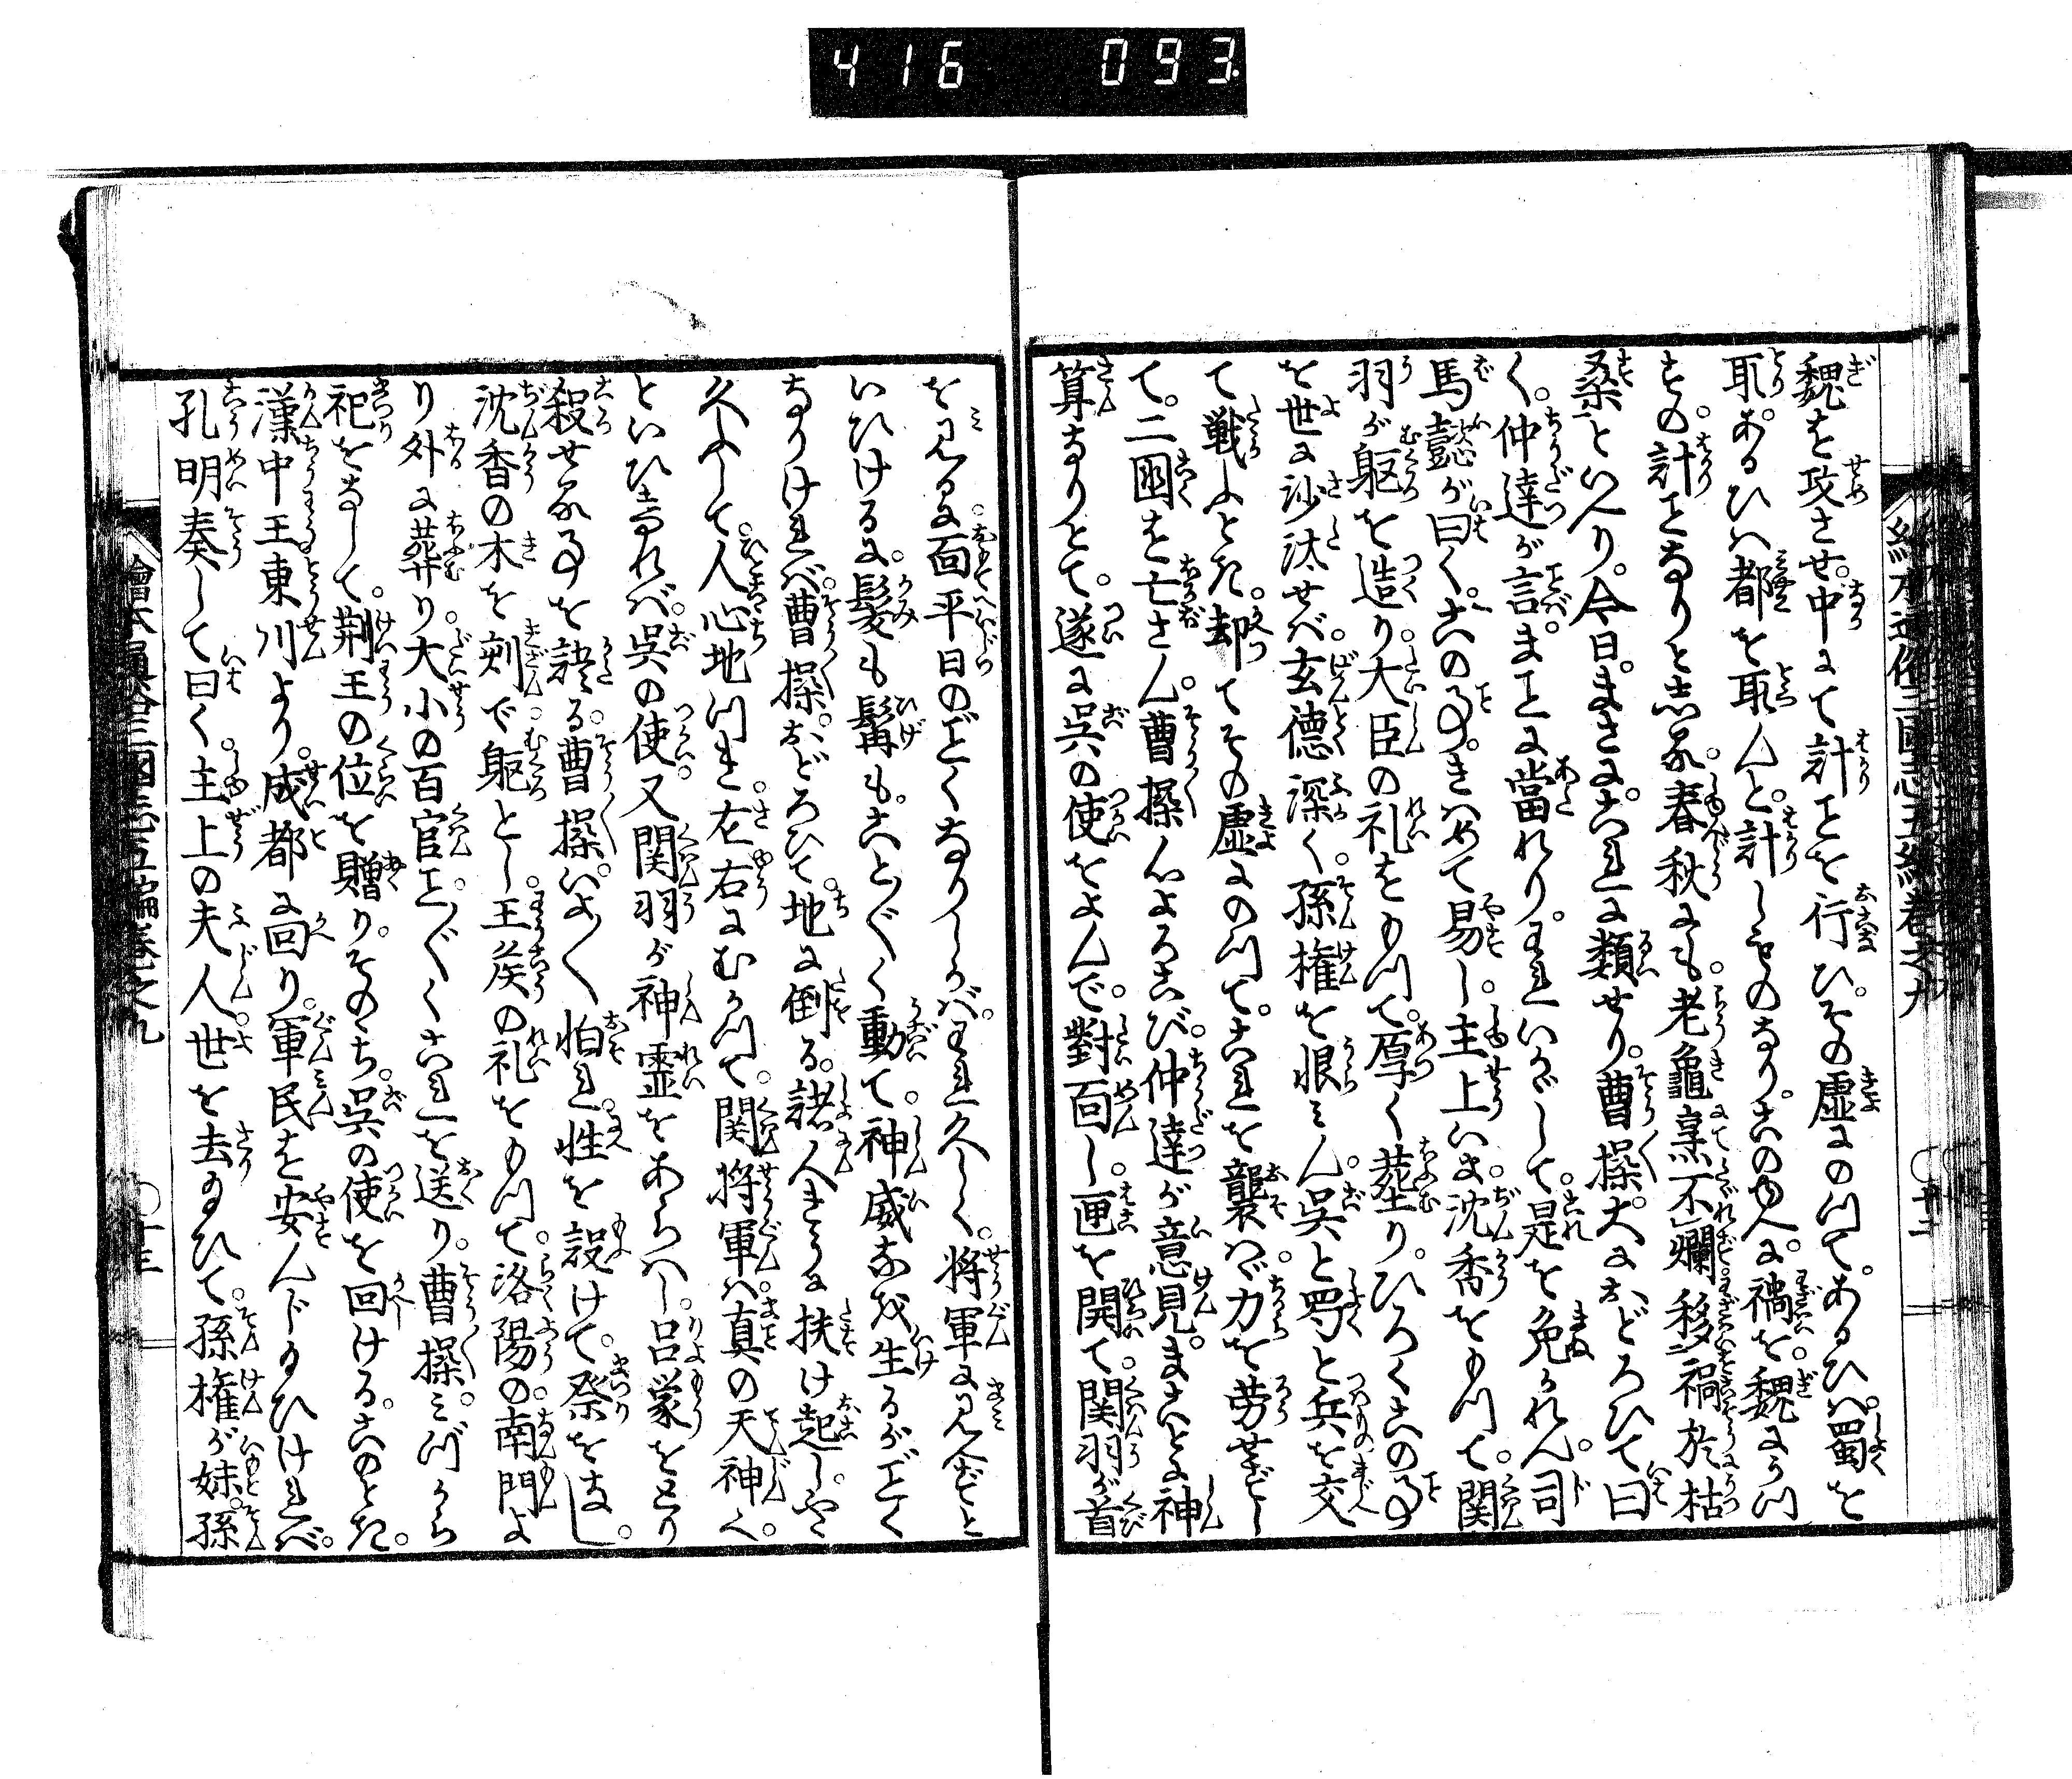 416 093.
魏を攻させ。中にて計ことを行ひ。その虚にのつて。あるひハ。蜀を
取。あるひハ都を取んと。計しものなり。このゆへに。禍を。魏にうつ
すの。計ことなりと志る。春秋にも。老龜烹不爛。移禍於枯
桑といへり。今日。まさに。これに類せり。曹操。大におどろひて曰
く。仲達が言。まことに當れり。それいかゞして。是を免かれん。司
馬懿が曰く。この事。きハめて易し。主上いま。沈香をもつて。関
羽が躯を造り。大臣の礼をもつて。厚く葬り。ひろくこの事
を世に沙汰せバ。玄德深く。孫権を恨ミん。呉と蜀と兵を交
て戦ふとき。却てその虚にのつて。これを襲ハヾ。力を労せずし
て。二国を亡さん。曹操心よろこび。仲達が意見。まことに神
算なりとて。遂に呉の使をよんで。對面し。匣を開て。関羽が首
を見るに。面平日のごとくなりしかバ。それ久しく。将軍に見へずと
いひけるに。髪も髯も。ことごく動て。神威なを生るがごとく
なりけれバ。曹操。おどろひて。地に倒る。諸人きうに扶け起し。やゝ
久ふして。人心地つき。左右にむかつて。関将軍ハ。真の天神へ。
といひ给れバ。呉の使。又関羽が神霊をあらハし。呂蒙をとり
殺せる事を語る。曹操。いよ〳〵怕れ。牲を設けて。祭をなし。
沈香の木を刻で躯とし。王侯の礼をもつて。洛陽の。南門よ
り外に葬り。大小の百官。ことごく。これを送り。曹操。ミづから
祀をなして。荆王の位を贈り。そのち。呉の使を回ける。このとき。
漢中王東川より。成都に回り。軍民を安んじ給ひけれバ。
孔明奏して曰く。主上の夫人。世を去給ひて。孫権が妹。孫